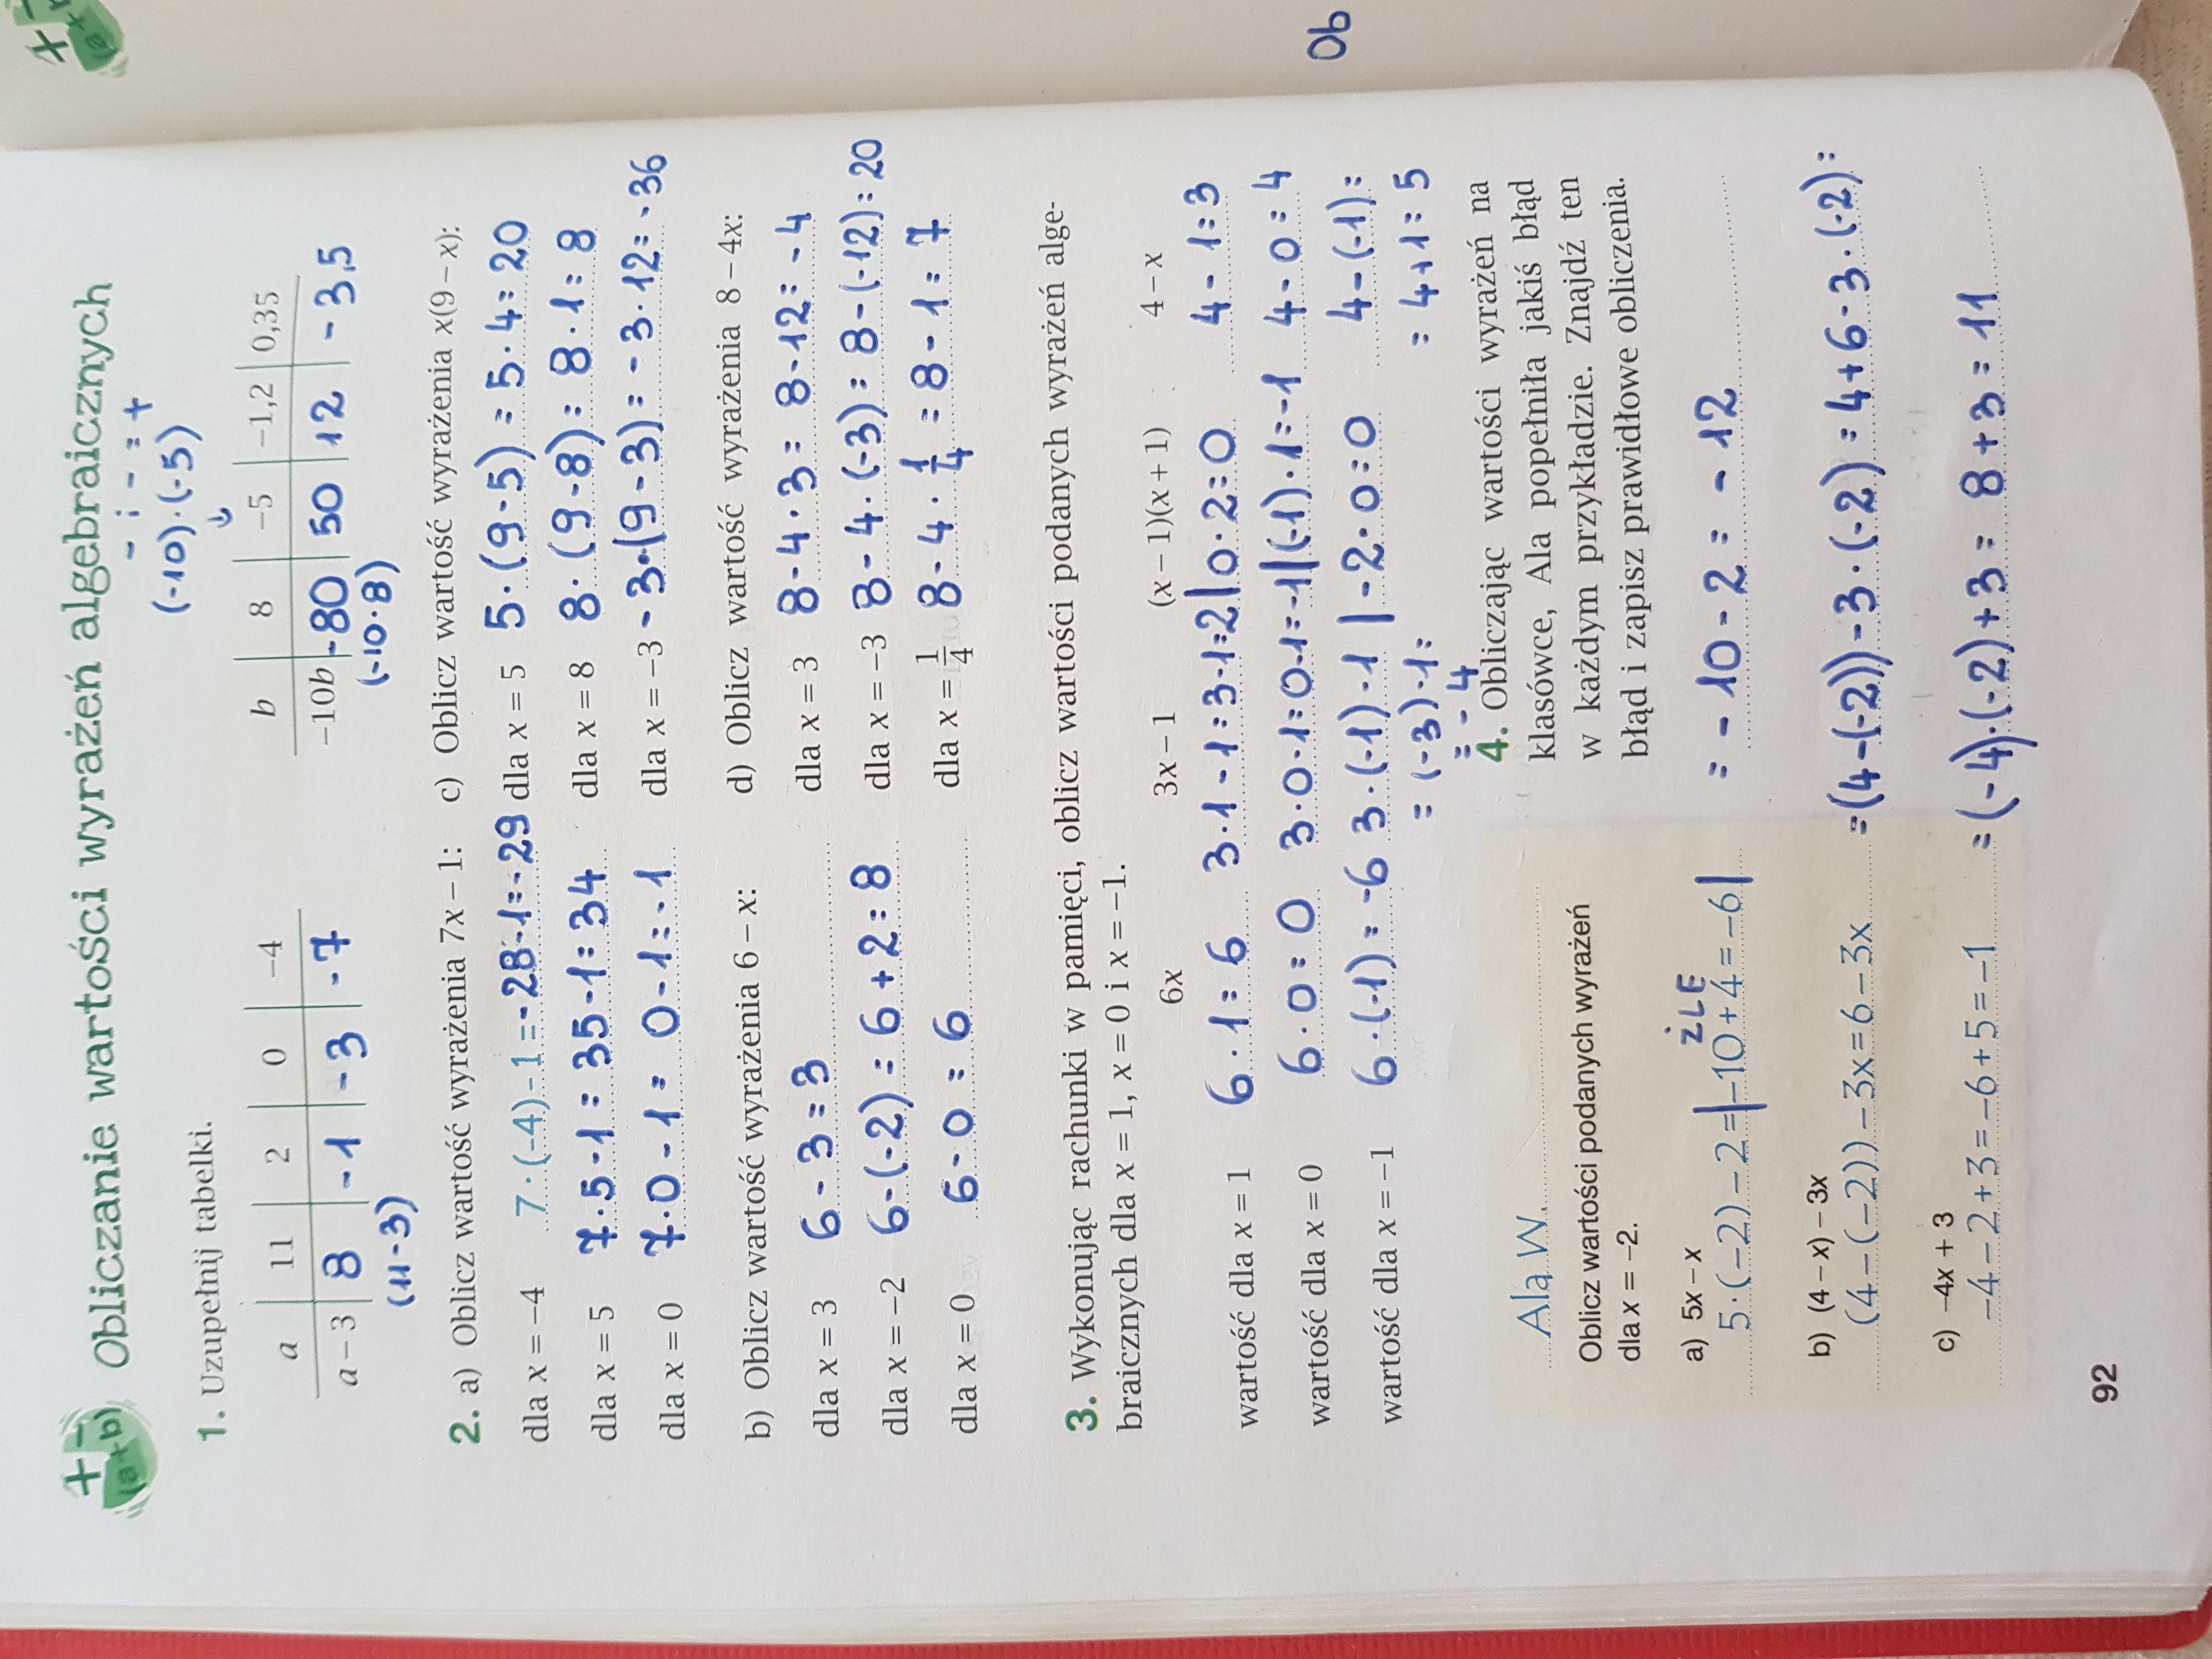 Obliczanie wartości wyrażeń algebraicznych
+ −
(a+b)
− i − = +
(-10)·(-5)
1. Uzupełnij tabelki.
a | 11 | 2 | 0 | −4
a − 3 | 8 | -1 | -3 | -7
(11-3)
b | 8 | −5 | −1,2 | 0,35
−10b | -80 | 50 | 12 | -3,5
(-10·8)
2. a) Oblicz wartość wyrażenia 7x − 1:
dla x = −4 7·(−4)−1 = -28-1=-29
dla x = 5 7·5-1=35-1=34
dla x = 0 7·0-1= 0-1=-1
b) Oblicz wartość wyrażenia 6 − x:
dla x = 3 6-3=3
dla x = −2 6-(-2)=6+2=8
dla x = 0 6-0=6
c) Oblicz wartość wyrażenia x(9 − x):
dla x = 5 5·(9-5)=5·4=20
dla x = 8 8·(9-8)=8·1=8
dla x = −3 -3·(9-3)=-3·12=-36
d) Oblicz wartość wyrażenia 8 − 4x:
dla x = 3 8-4·3=8-12=-4
dla x = −3 8-4·(-3)=8-(-12)=20
dla x = 1/4 8-4·1/4=8-1=7
3. Wykonując rachunki w pamięci, oblicz wartości podanych wyrażeń alge-
braicznych dla x = 1, x = 0 i x = −1.
6x 3x − 1 (x − 1)(x + 1) 4 − x
wartość dla x = 1 6·1=6 3·1-1=3-1=2 | 0·2=0 4-1=3
wartość dla x = 0 6·0=0 3·0-1=0-1=-1 | (-1)·1=-1 4-0=4
wartość dla x = −1 6·(-1)=-6 3·(-1)-1 | -2·0=0 4-(-1)=
=(-3)-1= = 4+1=5
= -4
4. Obliczając wartości wyrażeń na
klasówce, Ala popełniła jakiś błąd
w każdym przykładzie. Znajdź ten
błąd i zapisz prawidłowe obliczenia.
Ala W.
Oblicz wartości podanych wyrażeń
dla x = −2.
a) 5x − x
ŻLE
5·(−2)−2=|−10+4=−6| = -10-2=-12
b) (4 − x) − 3x
(4−(−2))−3x=6−3x =(4-(-2))-3·(-2)=4+6-3·(-2)=
c) −4x + 3
−4−2+3=−6+5=−1 =(-4)·(-2)+3=8+3=11
92
Ob